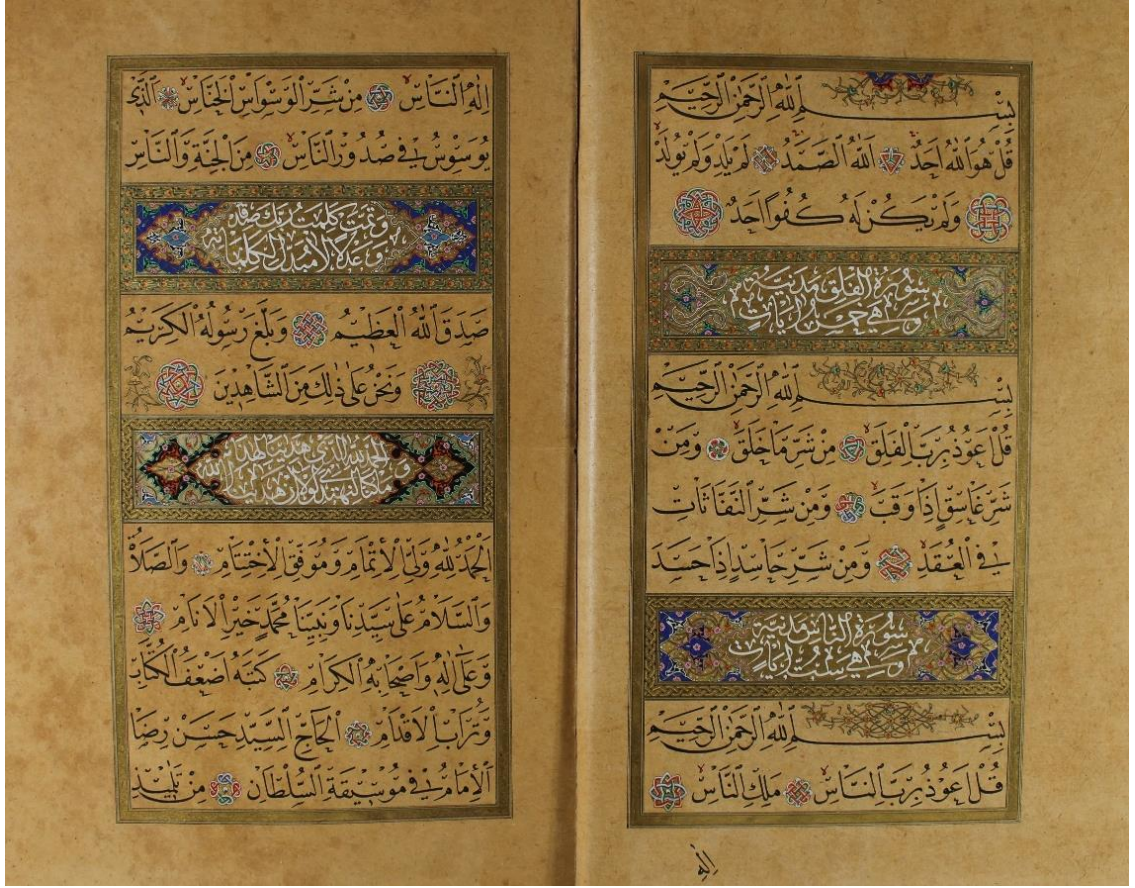 بِسْمِ اللّٰهِ الرَّحْمٰنِ الرَّحِيمِ
قُلْ هُوَ اللّٰهُ اَحَدٌ اَللّٰهُ الصَّمَدُ لَمْ يَلِدْ وَلَمْ يُولَدْ
وَلَمْ يَكُنْ لَهُ كُفُوًا اَحَدٌ
سُورَةُ الْفَلَقِ مَدَنِيَّةٌ
وَهِيَ خَمْسُ اٰيَاتٍ
بِسْمِ اللّٰهِ الرَّحْمٰنِ الرَّحِيمِ
قُلْ اَعُوذُ بِرَبِّ الْفَلَقِ مِنْ شَرِّ مَا خَلَقَ وَمِنْ
شَرِّ غَاسِقٍ اِذَا وَقَبَ وَمِنْ شَرِّ النَّفَّاثَاتِ
فِي الْعُقَدِ وَمِنْ شَرِّ حَاسِدٍ اِذَا حَسَدَ
سُورَةُ النَّاسِ مَدَنِيَّةٌ
وَهِيَ سِتُّ اٰيَاتٍ
بِسْمِ اللّٰهِ الرَّحْمٰنِ الرَّحِيمِ
قُلْ اَعُوذُ بِرَبِّ النَّاسِ مَلِكِ النَّاسِ
اِلٰهِ
اِلٰهِ النَّاسِ مِنْ شَرِّ الْوَسْوَاسِ الْخَنَّاسِ اَلَّذِي
يُوَسْوِسُ فِي صُدُورِ النَّاسِ مِنَ الْجِنَّةِ وَالنَّاسِ
وَتَمَّتْ كَلِمَتُ رَبِّكَ صِدْقًا
وَعَدْلًا لَا مُبَدِّلَ لِكَلِمَاتِهِ
صَدَقَ اللّٰهُ الْعَظِيمُ وَبَلَّغَ رَسُولُهُ الْكَرِيمُ
وَنَحْنُ عَلٰى ذٰلِكَ مِنَ الشَّاهِدِينَ
اَلْحَمْدُ لِلّٰهِ الَّذِي هَدٰينَا لِهٰذَا
وَمَا كُنَّا لِنَهْتَدِيَ لَوْلَا اَنْ هَدٰينَا اللّٰهُ
اَلْحَمْدُ لِلّٰهِ وَلِيِّ الْاِتْمَامِ وَمُوَفِّقِ الْاِخْتِتَامِ وَالصَّلَاةُ
وَالسَّلَامُ عَلٰى سَيِّدِنَا وَنَبِيِّنَا مُحَمَّدٍ خَيْرِ الْاَنَامِ
وَعَلٰى اٰلِهِ وَاَصْحَابِهِ الْكِرَامِ كَتَبَهُ اَضْعَفُ الْكُتَّابِ
وَتُرَابُ الْاَقْدَامِ اَلْحَاجُّ السَّيِّدُ حَسَنْ رِضَا
اَلْاِمَامُ فِي مُوسِيقَةِ السُّلْطَانِ مِنْ تَلَامِيذِ